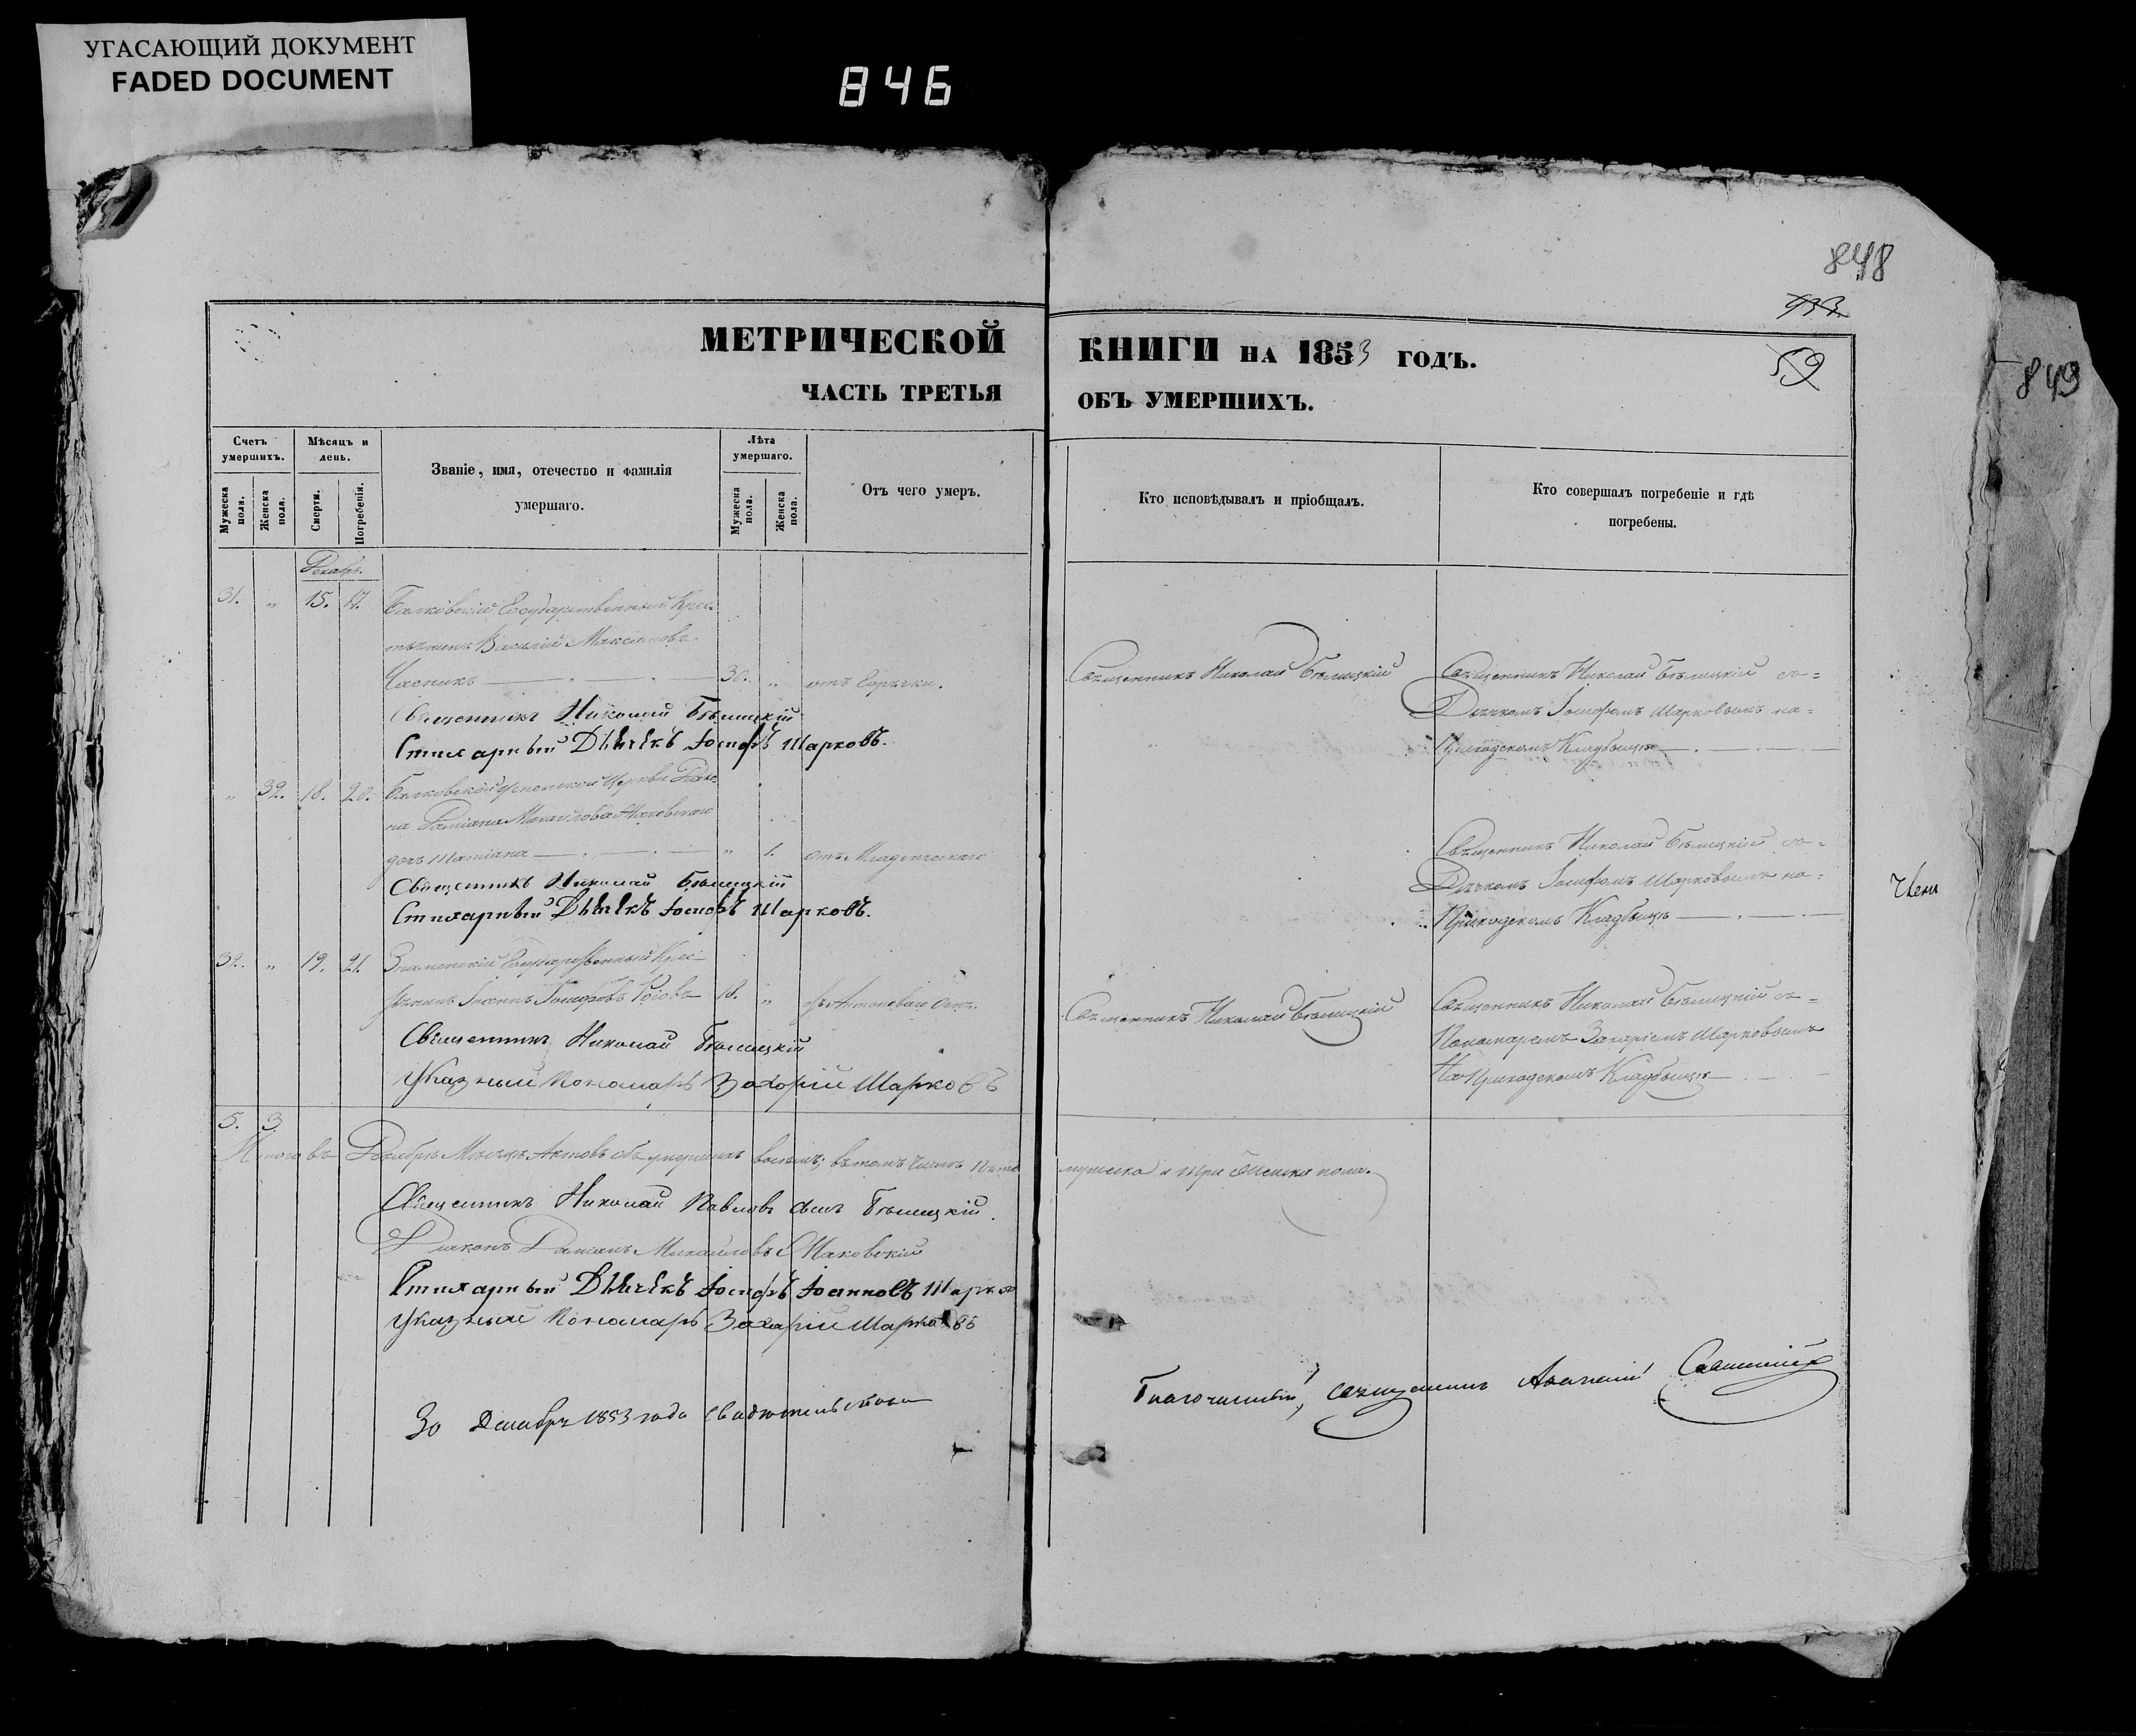 УГАСАЮЩИЙ ДОКУМЕНТ
FADED DOCUMENT
846
848
933
59
849
МЕТРИЧЕСКОЙ
ЧАСТЬ ТРЕТЬЯ
КНИГИ НА 1853 ГОДЪ.
ОБЪ УМЕРШИХЪ.
Счетъ умершихъ.
Мужеска пола.
Женска пола.
Мѣсяцъ и день.
Смерти.
Погребенія.
Званіе, имя, отечество и фамилія
умершаго.
Лѣта умершаго.
Мужеска пола.
Женска пола.
Отъ чего умеръ.
Кто исповѣдывалъ и пріобщалъ.
Кто совершалъ погребеніе и гдѣ
погребены.
Декабрь.
31. " 15. 17. Балковскій Государственный Крес-
тьянинъ Василій Максимовъ
Часникъ 30. " отъ Горячки.
Священникъ Николай Бѣлицкій
Священникъ Николай Бѣлицкій съ=
Дьячкомъ Іосифомъ Шарковымъ на=
Приходскомъ Кладбищѣ
Священникъ Николай Бѣлицкій
Стихарный Дьячекъ Іосифъ Шарковъ.
" 32. 18. 20. Балковской Успенской Церкви Діако-
на Даміана Михайлова Маковскаго
дочь Татіана " 1. отъ Младенческаго
Священникъ Николай Бѣлицкій съ=
Дьячкомъ Іосифомъ Шарковымъ на=
Приходскомъ Кладбищѣ
Священникъ Николай Бѣлицкій
Стихарный Дьячекъ Іосифъ Шарковъ.
32. " 19. 21. Знаменскій Государственный Крес-
тьянинъ Іоаннъ Іосифовъ 18. "
Священникъ Николай Бѣлицкій
Священникъ Николай Бѣлицкій съ=
Пономаремъ Захаріемъ Шарковымъ
На Приходскомъ Кладбищѣ
Священникъ Николай Бѣлицкій
Указный Пономарь Захорій Шарковъ
5. 3.
Итого въ Декабрѣ Мѣсяцѣ Актовъ объ умершихъ восемь; въ томъ числѣ пять мужеска и три женска пола.
Священникъ Николай Павловъ сынъ Бѣлицкій.
Діаконъ Даміанъ Михайловъ Маковскій
Стихарный Дьячекъ Іосифъ Іоанновъ Шарков
Указный Пономарь Захарій Шарковъ
30 Декабря 1853 года свидѣтельствовалъ
Благочинный, священникъ